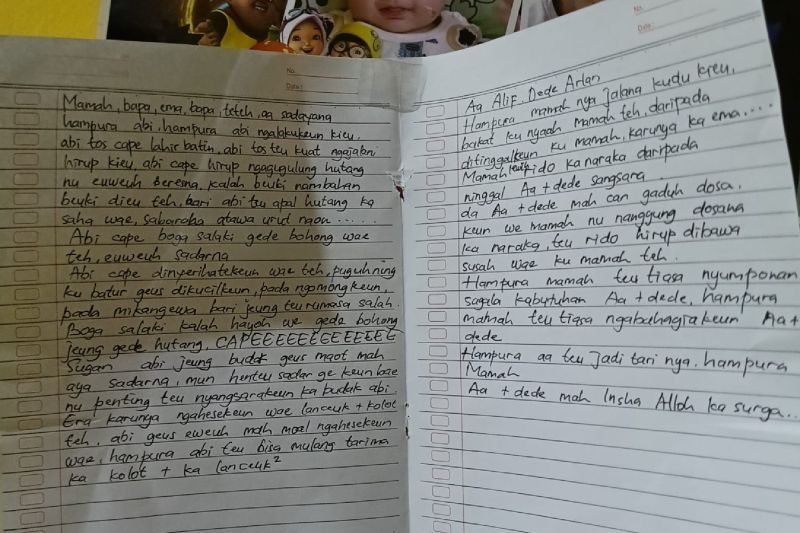 No.
Date :
Mamah, bapa, ema, bapa, teteh, aa sadayana
hampura abi, hampura abi ngalakukeun kieu,
abi tos cape lahir batin, abi tos teu kuat ngajabni
hirup kieu, abi cape hirup ngagugulung hutang
nu euweuh beresna, kalah beuki nambahan
beuki dieu teh, bari abi teu apal hutang ka
saha wae, sabaraha atawa urut naon ......
Abi cape boga salaki gede bohong wae
teh, euweuh sadarna
Abi cape dinyerihatekeun wae teh, puguh ning
ku batur geus dikucilkeun, pada ngomongkeun,
pada mikangewa bari jeung teu rumasa salah.
Boga salaki kalah hayoh we gede bohong
jeung gede hutang, CAPEEEEEEEEEEEEE
Sugan abi jeung budak geus maot mah
aya sadarna, mun henteu sadar ge keun bae
nu penting teu nyangsarakeun ka budak abi
Era karunya ngahesekeun wae lanceuk + kolot
teh, abi geus euweuh mah moal ngahesekeun
wae, hampura abi teu bisa mulang tarima
ka kolot + ka lanceuk²
No.
Date :
Aa Alif Dede Arlan
Hampura mamah nya jalana kudu kieu,
bakat ku nyaah mamah teh, daripada
ditinggalkeun ku mamah, karunya ka ema....
Mamah leuih rido ka naraka daripada
ninggal Aa + dede sangsara
da Aa + dede mah can gaduh dosa.
keun we mamah nu nanggung dosana
ka naraka, teu rido hirup dibawa
susah wae ku mamah teh.
Hampura mamah teu tiasa nyumponan
sagala kabutuhan Aa + dede, hampura
mamah teu tiasa ngabahagiakeun Aa +
dede
Hampura aa teu jadi tari nya. hampura
Mamah
Aa + dede mah Insha Alloh ka surga...